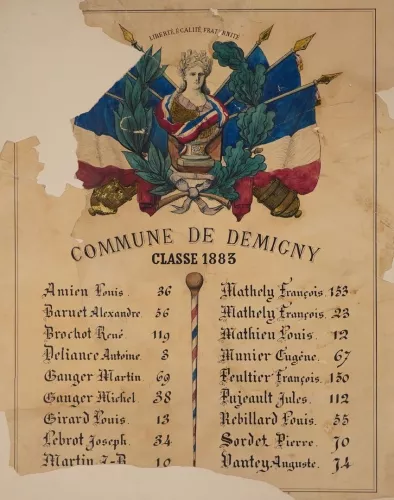 LIBERTÉ, ÉGALITÉ, FRATERNITÉ
COMMUNE DE DEMIGNY
CLASSE 1883
Amien Louis. 36
Baruet Alexandre 56
Brochot René 119
Deliance Antoine. 3
Ganger Martin. 69
Ganger Michel. 38
Girard Louis. 13
Lebrot Joseph. 34
Martin J-B. 10
Mathely François. 153
Mathely François. 23
Mathieu Louis. 12
Munier Eugène. 67
Peultier François. 150
Pujeault Jules. 112
Rebillard Louis. 55
Sordet Pierre. 70
Vantey Auguste. 74